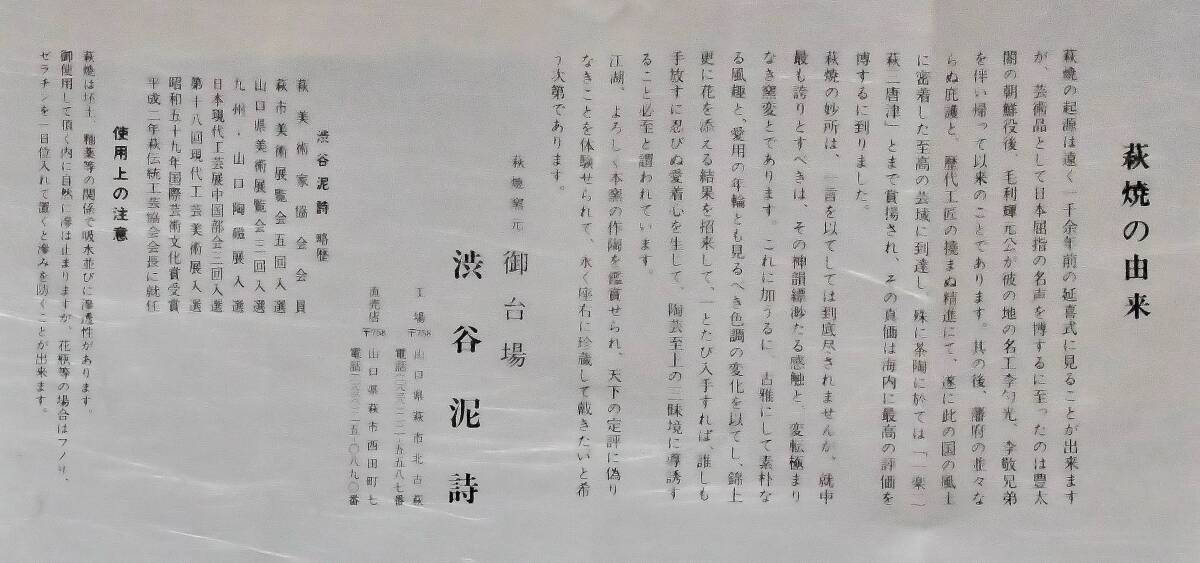 萩焼の由来
萩焼の起源は遠く一千余年前の延喜式に見ることが出来ます
が、芸術品として日本屈指の名声を博するに至ったのは豊太
閤の朝鮮役後、毛利輝元公が彼の地の名工李勺光、李敬兄弟
を伴い帰って以来のことであります。其の後、藩府の並々な
らぬ庇護と、歴代工匠の撓まぬ精進にて、遂に此の国の風土
に密着した至高の芸域に到達し、殊に茶陶に於ては「一楽二
萩三唐津」とまで賞揚され、その真価は海内に最高の評価を
博するに到りました。
萩焼の妙所は、一言を以てしては到底尽されませんが、就中
最も誇りとすべきは、その神韻縹渺たる感触と、変転極まり
なき窯変とであります。これに加うるに、古雅にして素朴な
る風趣と、愛用の年輪とも見るべき色調の変化を以てし、錦上
更に花を添える結果を招来して、一とたび入手すれば、誰しも
手放すに忍びぬ愛着心を生して、陶芸至上の三昧境に導誘す
ること必至と謂われています。
江湖、よろしく本窯の作陶を鑑賞せられ、天下の定評に偽り
なきことを体験せられて、永く座右に珍蔵して戴きたいと希
う次第であります。
萩焼窯元 御台場
渋谷泥詩
工場 〒758 山口県萩市北古萩
電話(〇八三八二)二-五五八七番
直売店 〒758 山口県萩市西田町七
電話(〇八三八二)五-〇八九〇番
渋谷泥詩 略歴
萩美術家協会会員
萩市美術展覧会五回入選
山口県美術展覧会三回入選
九州・山口陶磁展入選
日本現代工芸展中国部会三回入選
第十八回現代工芸美術展入選
昭和五十九年国際芸術文化賞受賞
平成二年萩伝統工芸協会会長に就任
使用上の注意
萩焼は坯土、釉薬等の関係で吸水並びに滲透性があります。
御使用して頂く内に自然に滲は止まりますが、花瓶等の場合はフノリ、
ゼラチンを一日位入れて置くと滲みを防ぐことが出来ます。